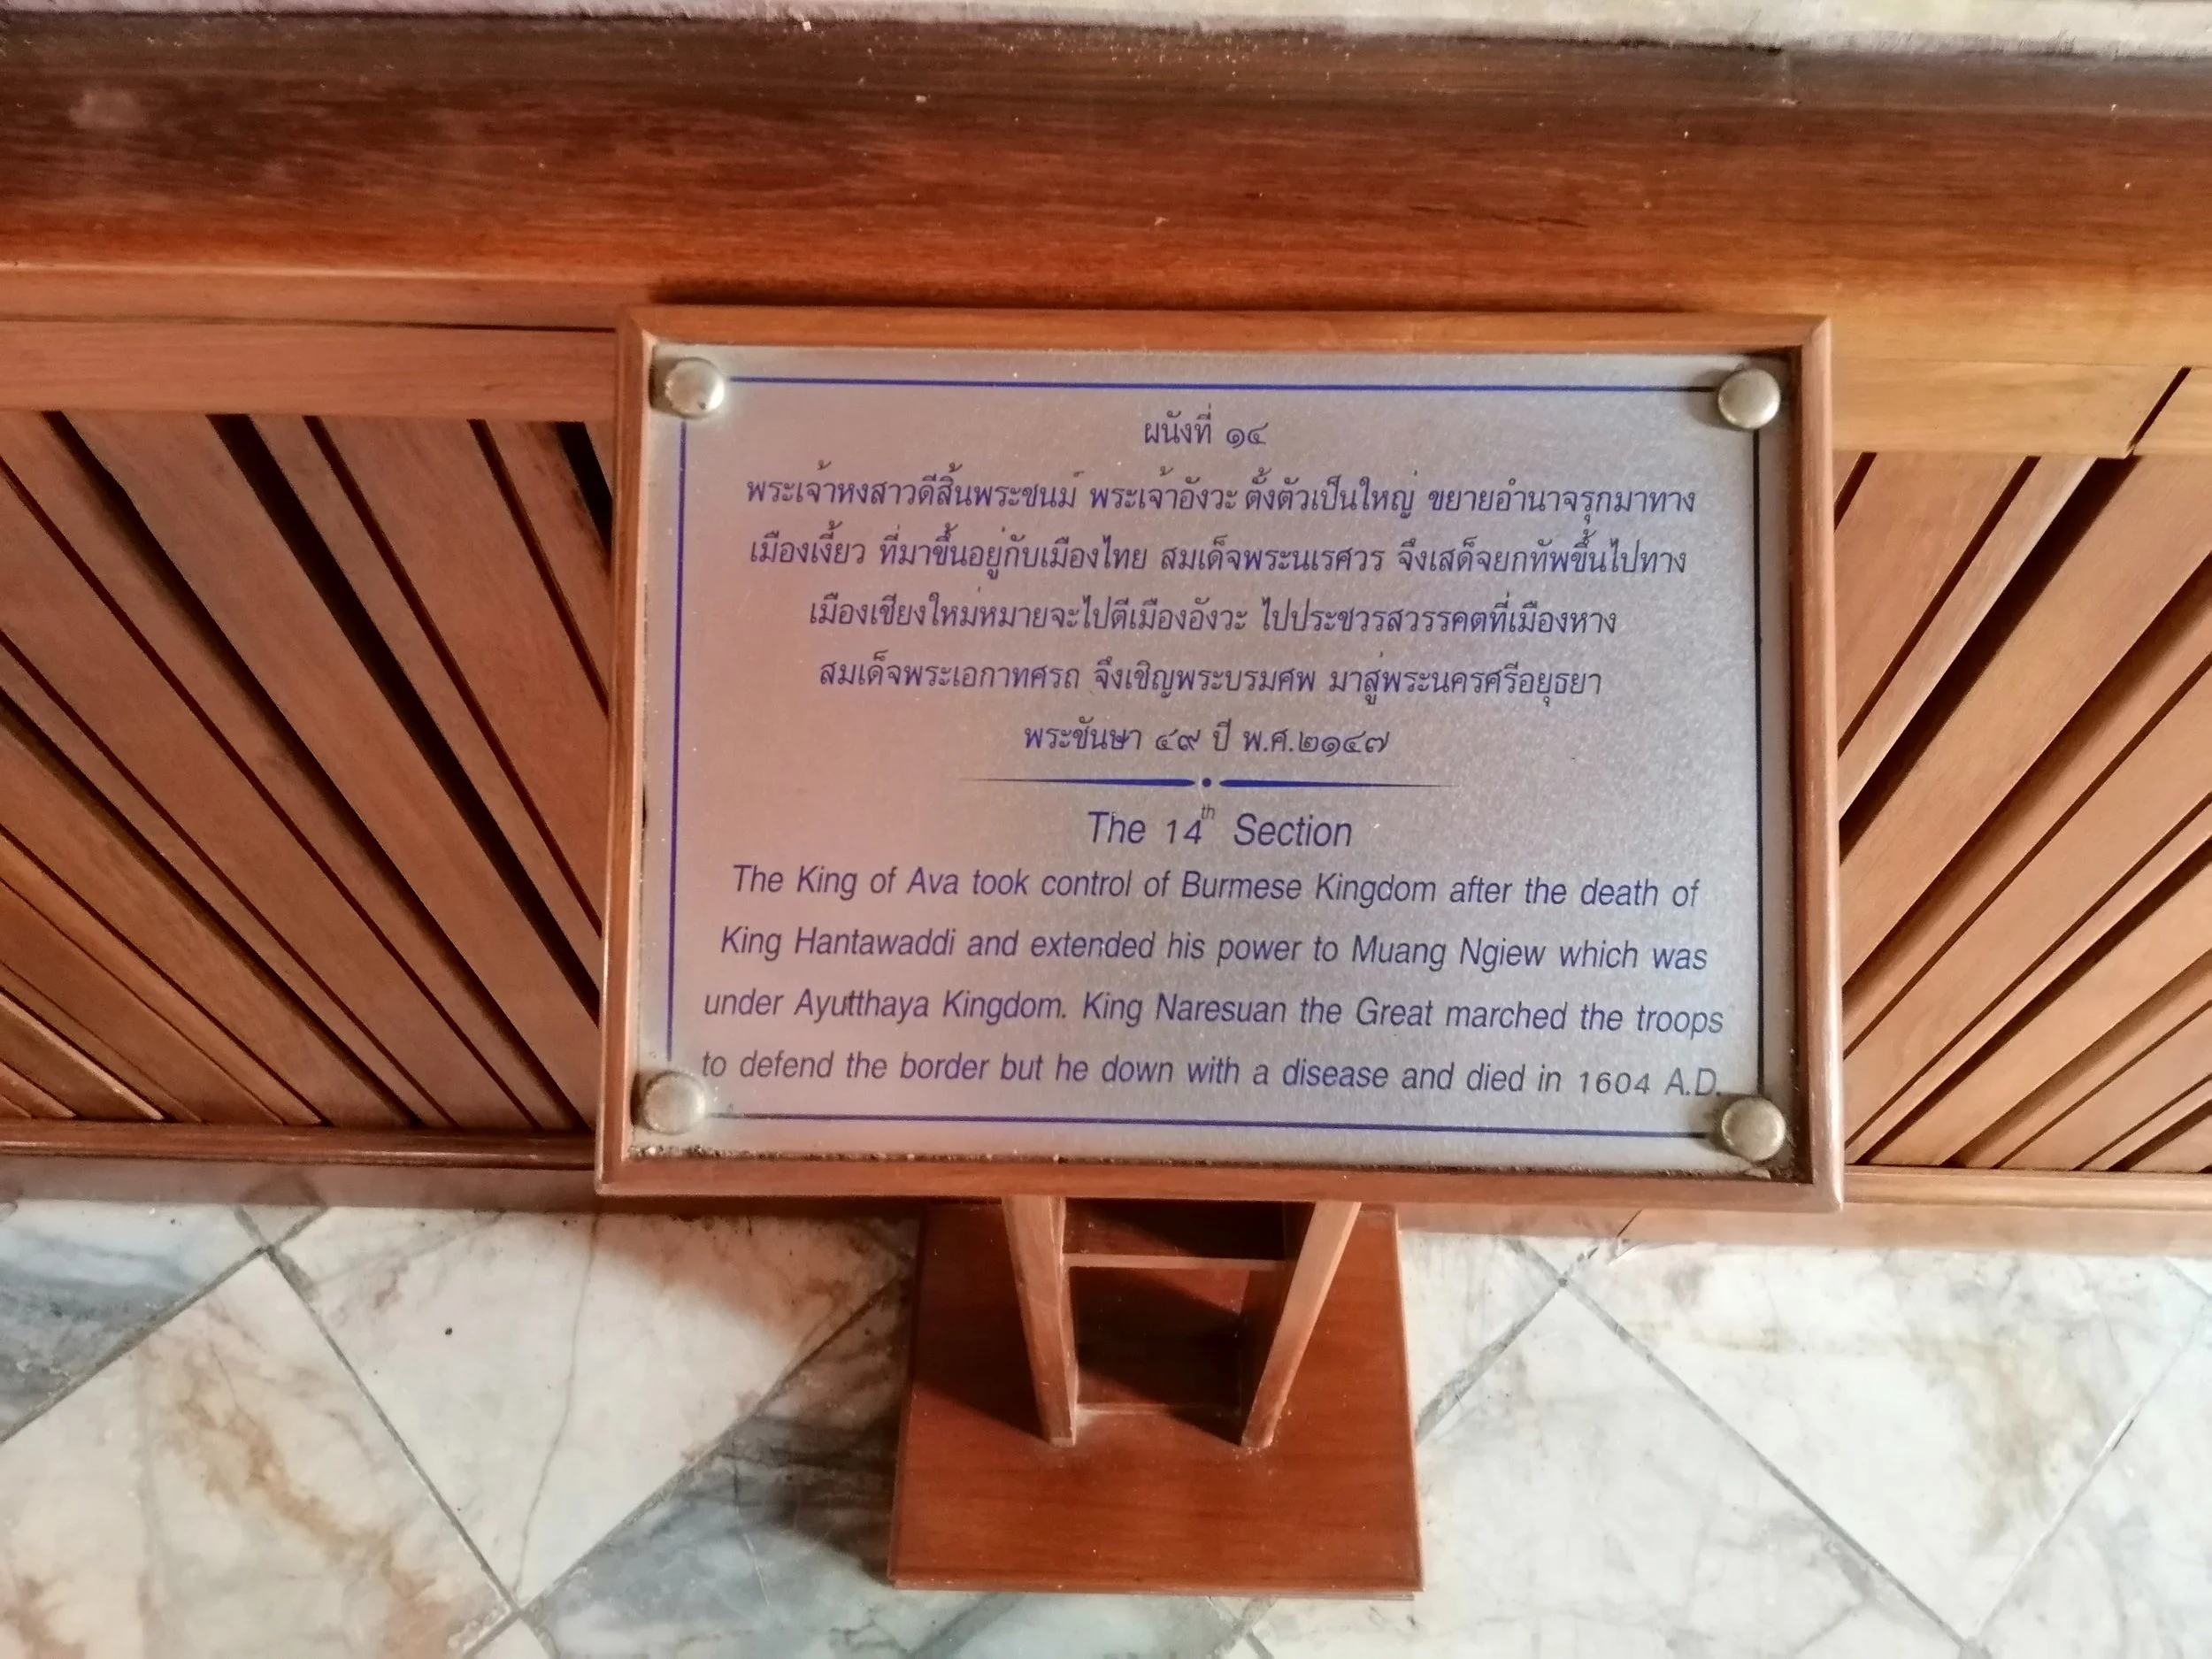 ผนังที่ ๑๔
พระเจ้าหงสาวดีสิ้นพระชนม์ พระเจ้าอังวะ ตั้งตัวเป็นใหญ่ ขยายอำนาจรุกมาทาง
เมืองเงี้ยว ที่มาขึ้นอยู่กับเมืองไทย สมเด็จพระนเรศวร จึงเสด็จยกทัพขึ้นไปทาง
เมืองเชียงใหม่หมายจะไปตีเมืองอังวะ ไปประชวรสวรรคตที่เมืองหาง
สมเด็จพระเอกาทศรถ จึงเชิญพระบรมศพ มาสู่พระนครศรีอยุธยา
พระชันษา ๔๙ ปี พ.ศ.๒๑๔๗
The 14th Section
The King of Ava took control of Burmese Kingdom after the death of
King Hantawaddi and extended his power to Muang Ngiew which was
under Ayutthaya Kingdom. King Naresuan the Great marched the troops
to defend the border but he down with a disease and died in 1604 A.D.